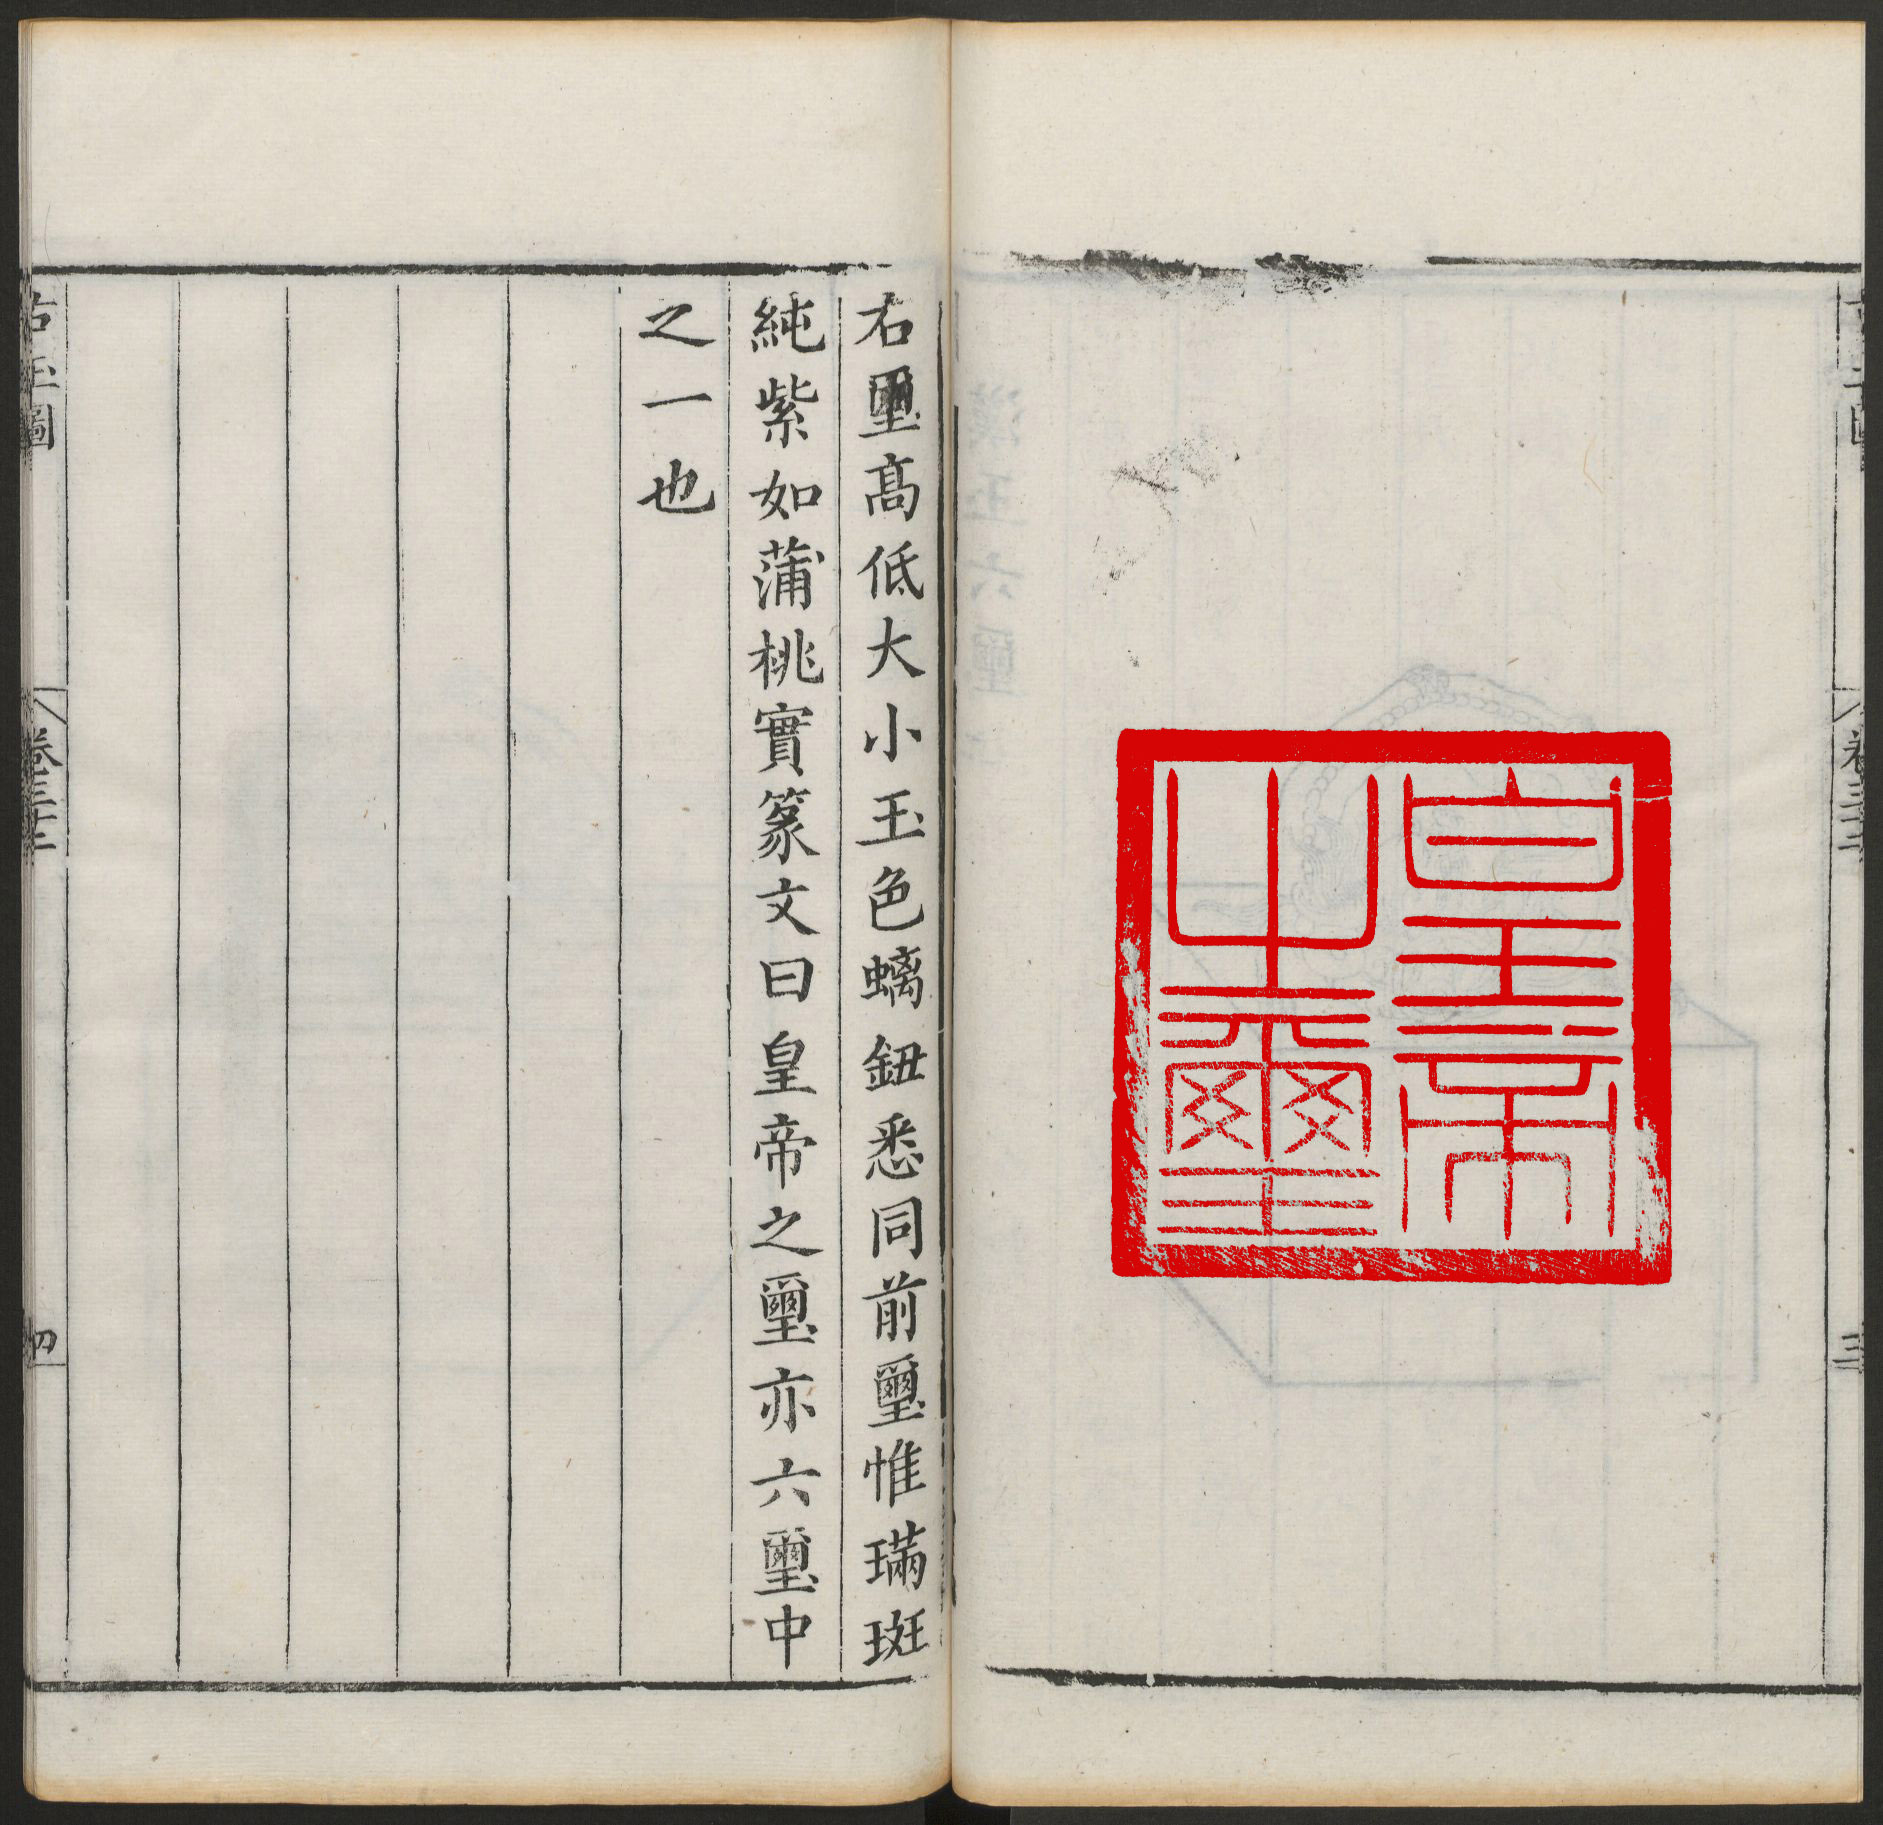 皇帝
之璽
右璽高低大小玉色螭鈕悉同前璽惟璊斑
純紫如蒲桃實篆文曰皇帝之璽亦六璽中
之一也
古玉圖
卷三十二
四